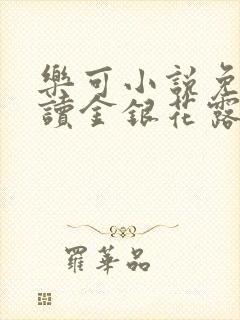 樂可小說免
讀金銀花露
羅華品